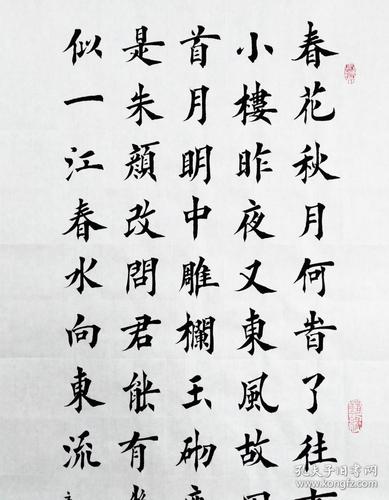 春花秋月何旹了往
小樓昨夜又東風故
首月明中雕欄玉砌
是朱顔改問君能有
似一江春水向東流
孔夫子旧书网
www.kongfz.com